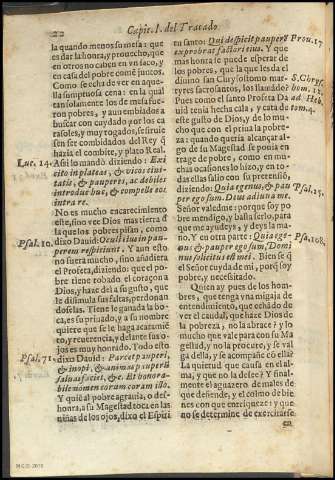 22
Capit. I. del Tratado
la quando menos su meta: que
es dar la honra, y prouecho, que
en otros no caben en vn saco, y
en casa del pobre come juntos.
Como se echa de ver en aque-
lla sumptuosa cena: en la qual
tan solamente los de mesa fue-
ron pobres, y aun embiados a
buscar con cuydado por los ca
rasoles, y muy rogados, se siruie
sen ser combidados del Rey q̃
haria el combite, y plato Real.
Luc. 14.
Assi lo mandò diziendo: Exi
cito in plateas, & vicos ciui-
tatis, & pauperes, ac debiles
introduc huc, & compelle eos
intrare.
No es mucho encarecimiento
este, sino ver Dios mas tierra à
Psal. 10.
los que lo son pobres, como
dixo Dauid: Oculi eius in pau-
perem respiciunt. Y aun esto
no fuera mucho, sino añadiera
el Profeta, diziendo: que el po
bre tiene robado el coraçon a
Dios, y haze del a su gusto, que
le dissimula sus faltas, perdonan
doselas. Tiene le ganada la bo-
ca, es su priuado, y a su nombre
quiere que se le haga acatamiẽ
to, y reuerencia, y delante sus o-
jos es muy honrado. Todo esto
Psal. 71.
dixo Dauid: Parcet pauperi,
& inopi, & animas pauperũ
saluas faciet, &c. Et honora-
bile nomen eorum coram illo.
Y quiẽ al pobre agrauia, o des-
honra, a su Magestad toca en las
niñas de los ojos, dixo el Espiri
tu santo: Qui despicit pauperẽ
Prou. 17
exprobrat factori eius. Y que
mas honra se puede esperar de
los pobres, que la que les da el
diuino san Chrysostomo mar-
S. Chrys.
tyres sacrosantos, los llamàdo?
hom. 12.
Pues como el santo Profeta Da
ad. Heb.
uid tenia hecha cala, y cata de
tom. 4.
este gusto de Dios, y de lo mu-
cho que con el priua la pobre-
za: quando queria alcançar al-
go de su Magestad se ponia en
trage de pobre, como en mu-
chas ocasiones lo hizo, y en to-
das ellas salio con su pretension,
diziendo: Quia egenus, & pau
Psal. 25.
per ego sum. Deus adiuua me.
Señor valedme: porque soy po
bre mendigo, y basta serlo, para
que me ayudeys, y deys la ma-
no. Y en otra parte: Quia ege-
Psa. 108.
nus & pauper ego sum, Domi
nus solicitus est mei. Bien se q̃
el Señor cuyda de mi, porq̃ soy
pobre, y necessitado.
Quien ay pues de los hom-
bres, que tenga vna migaja de
entendimiento, que echãdo de
ver el caudal, que haze Dios de
la pobreza, no la abrace? y lo
mucho que vale para con su Ma
gestad, y no la procure, y se val
ga della, y se acompañe cõ ella?
La quietud que causa en el al-
ma, y que no la desee? Y final-
mente el aguazero de males de
que defiende, el numero de cul
pas que euita su exercicio, y que
no se determine de exercitarse
en
M.C.D. 2018